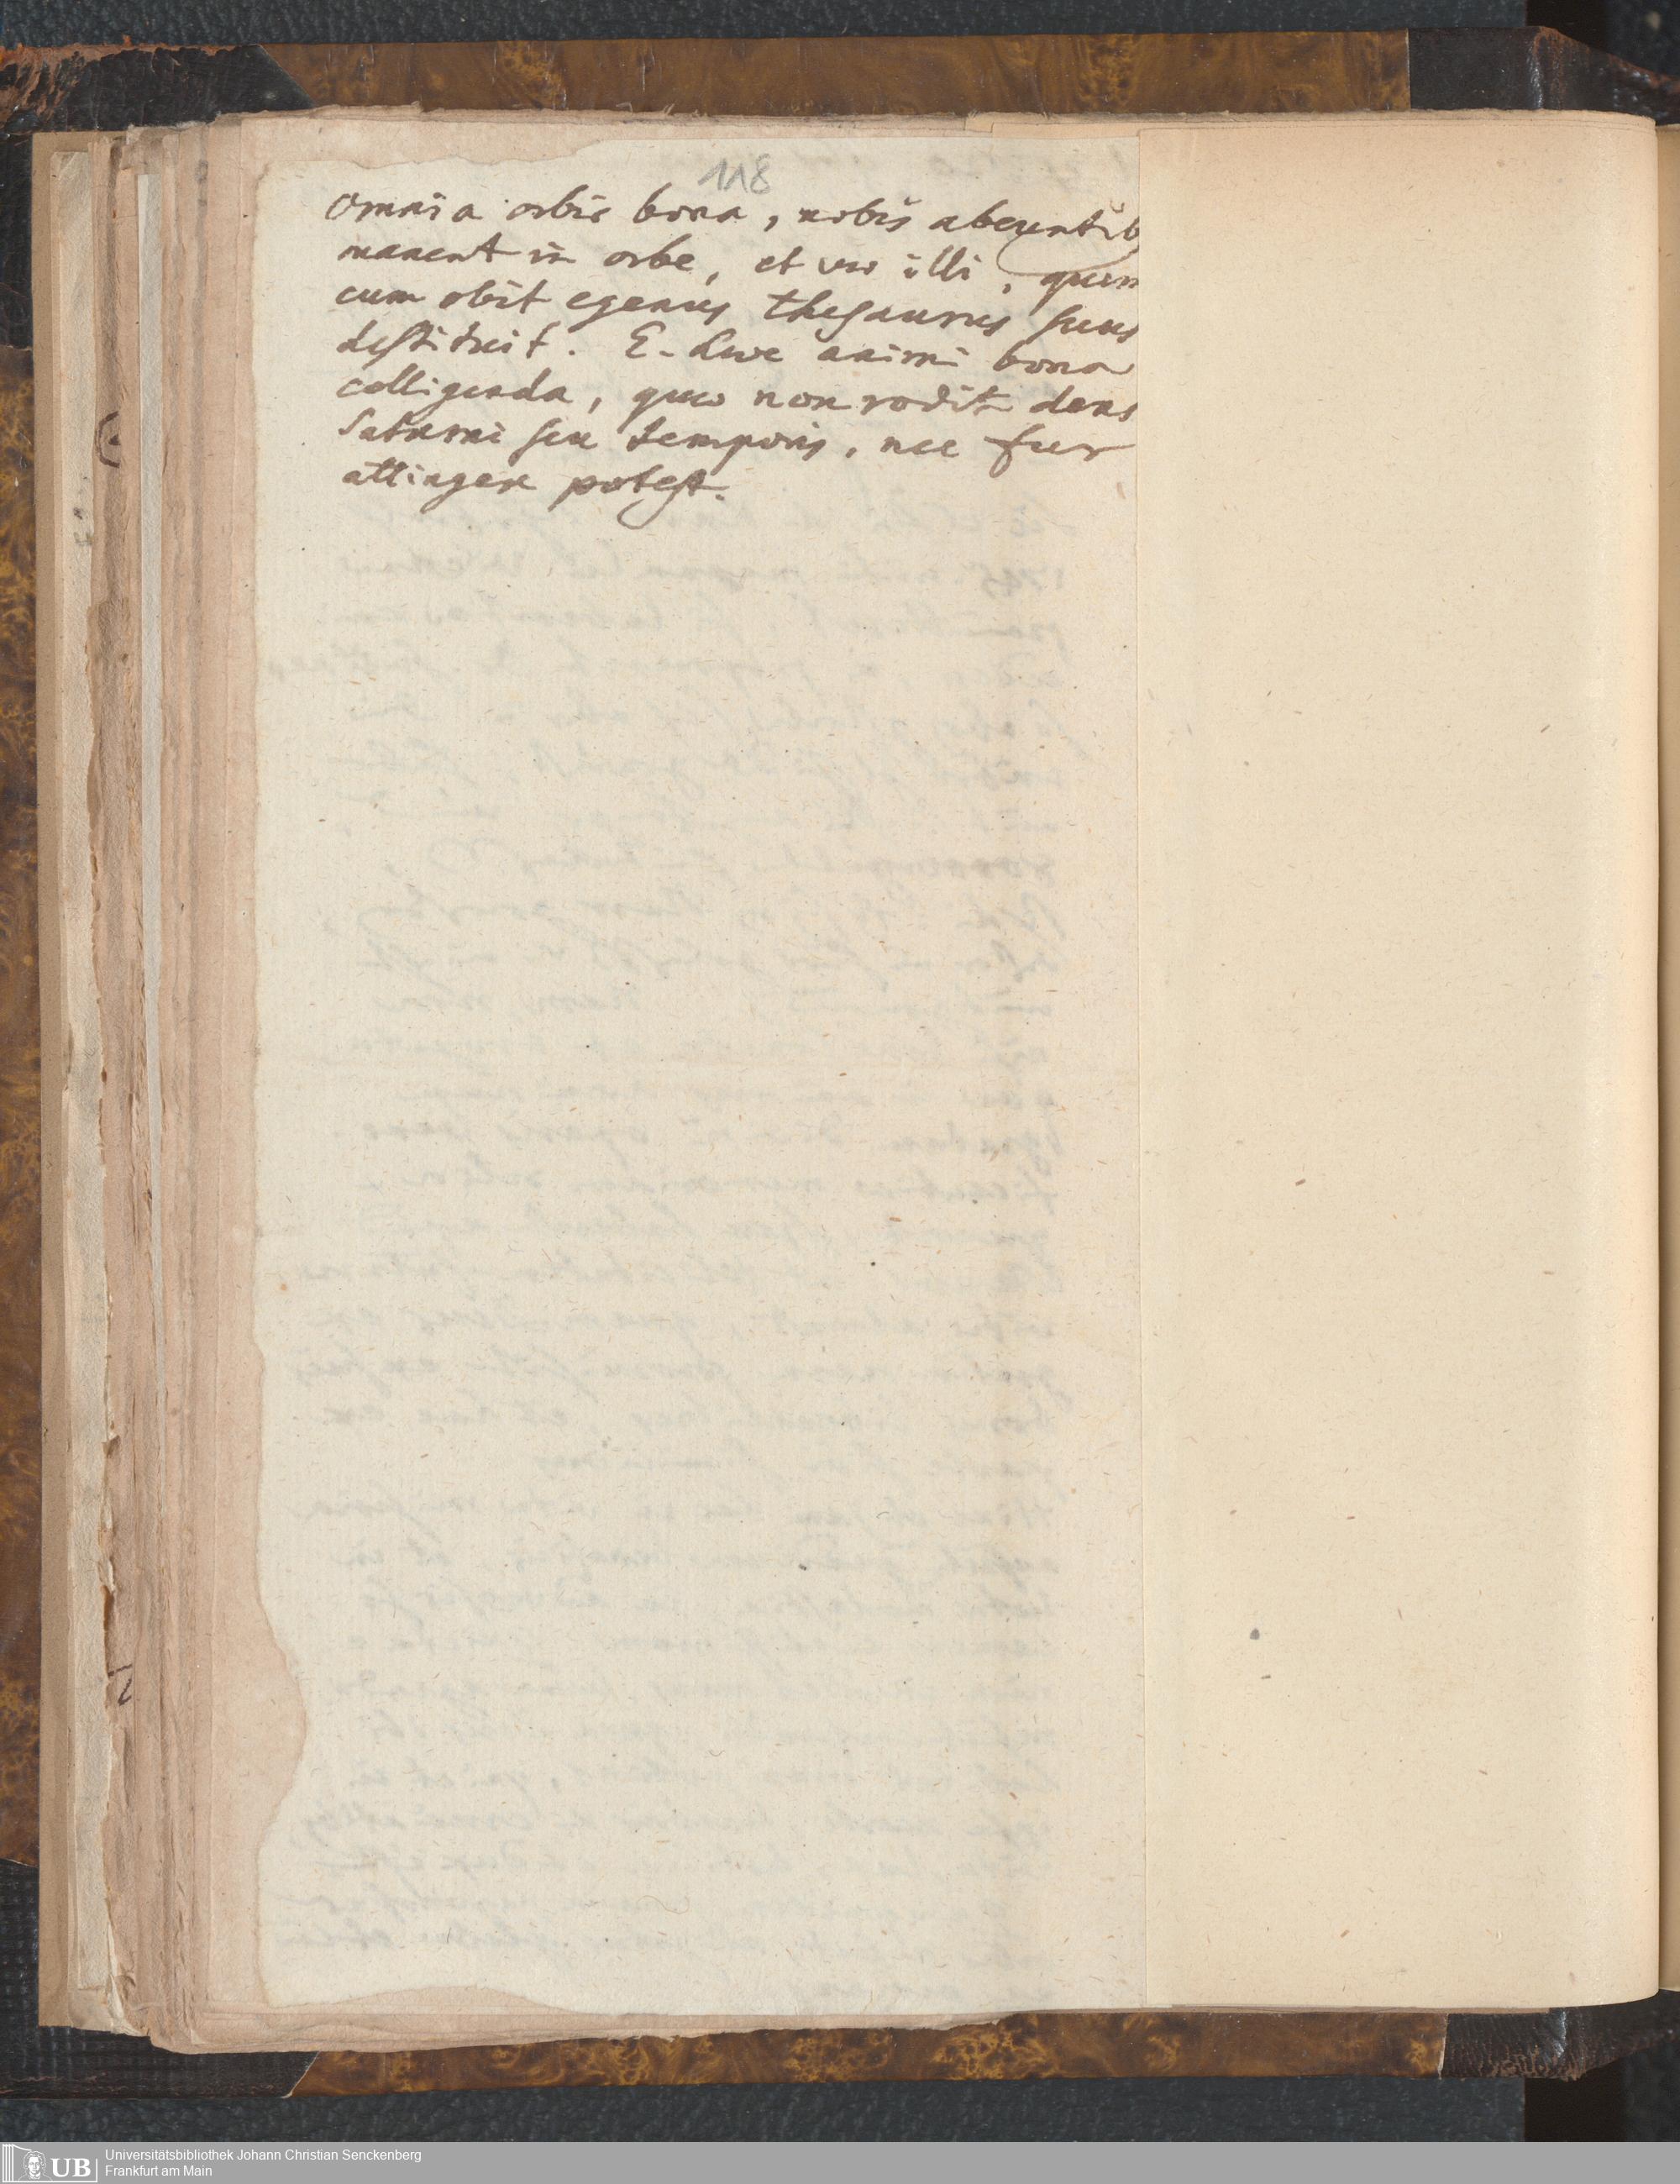 118
omnia orbis bona, nobis abeuntib
manent in orbe, et vae illi, quem
cum obit egenus thesaurus suus
destituit. E. duce animi bona
colligenda, quae non rodit dens
Saturni seu temporis, nec fur
attingere potest.
UB
Universitätsbibliothek Johann Christian Senckenberg
Frankfurt am Main